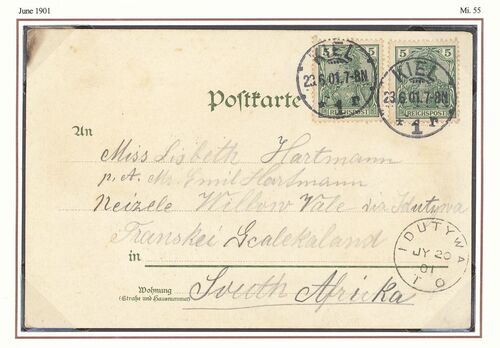 June 1901
Mi. 55
5 5
5 5
REICHSPOST
REICHSPOST
KIEL
23.6.01.7-8N
1
KIEL
23.6.01.7-8N
1
Postkarte
An
Miss Lisbeth Hartmann
p. A. Mr. Emil Hartmann
Neizele Willow Vale via Idutywa
Transkei Gcalekaland
in
South Afrika
Wohnung
(Straße und Hausnummer)
IDUTYWA
JY 20
01
T O